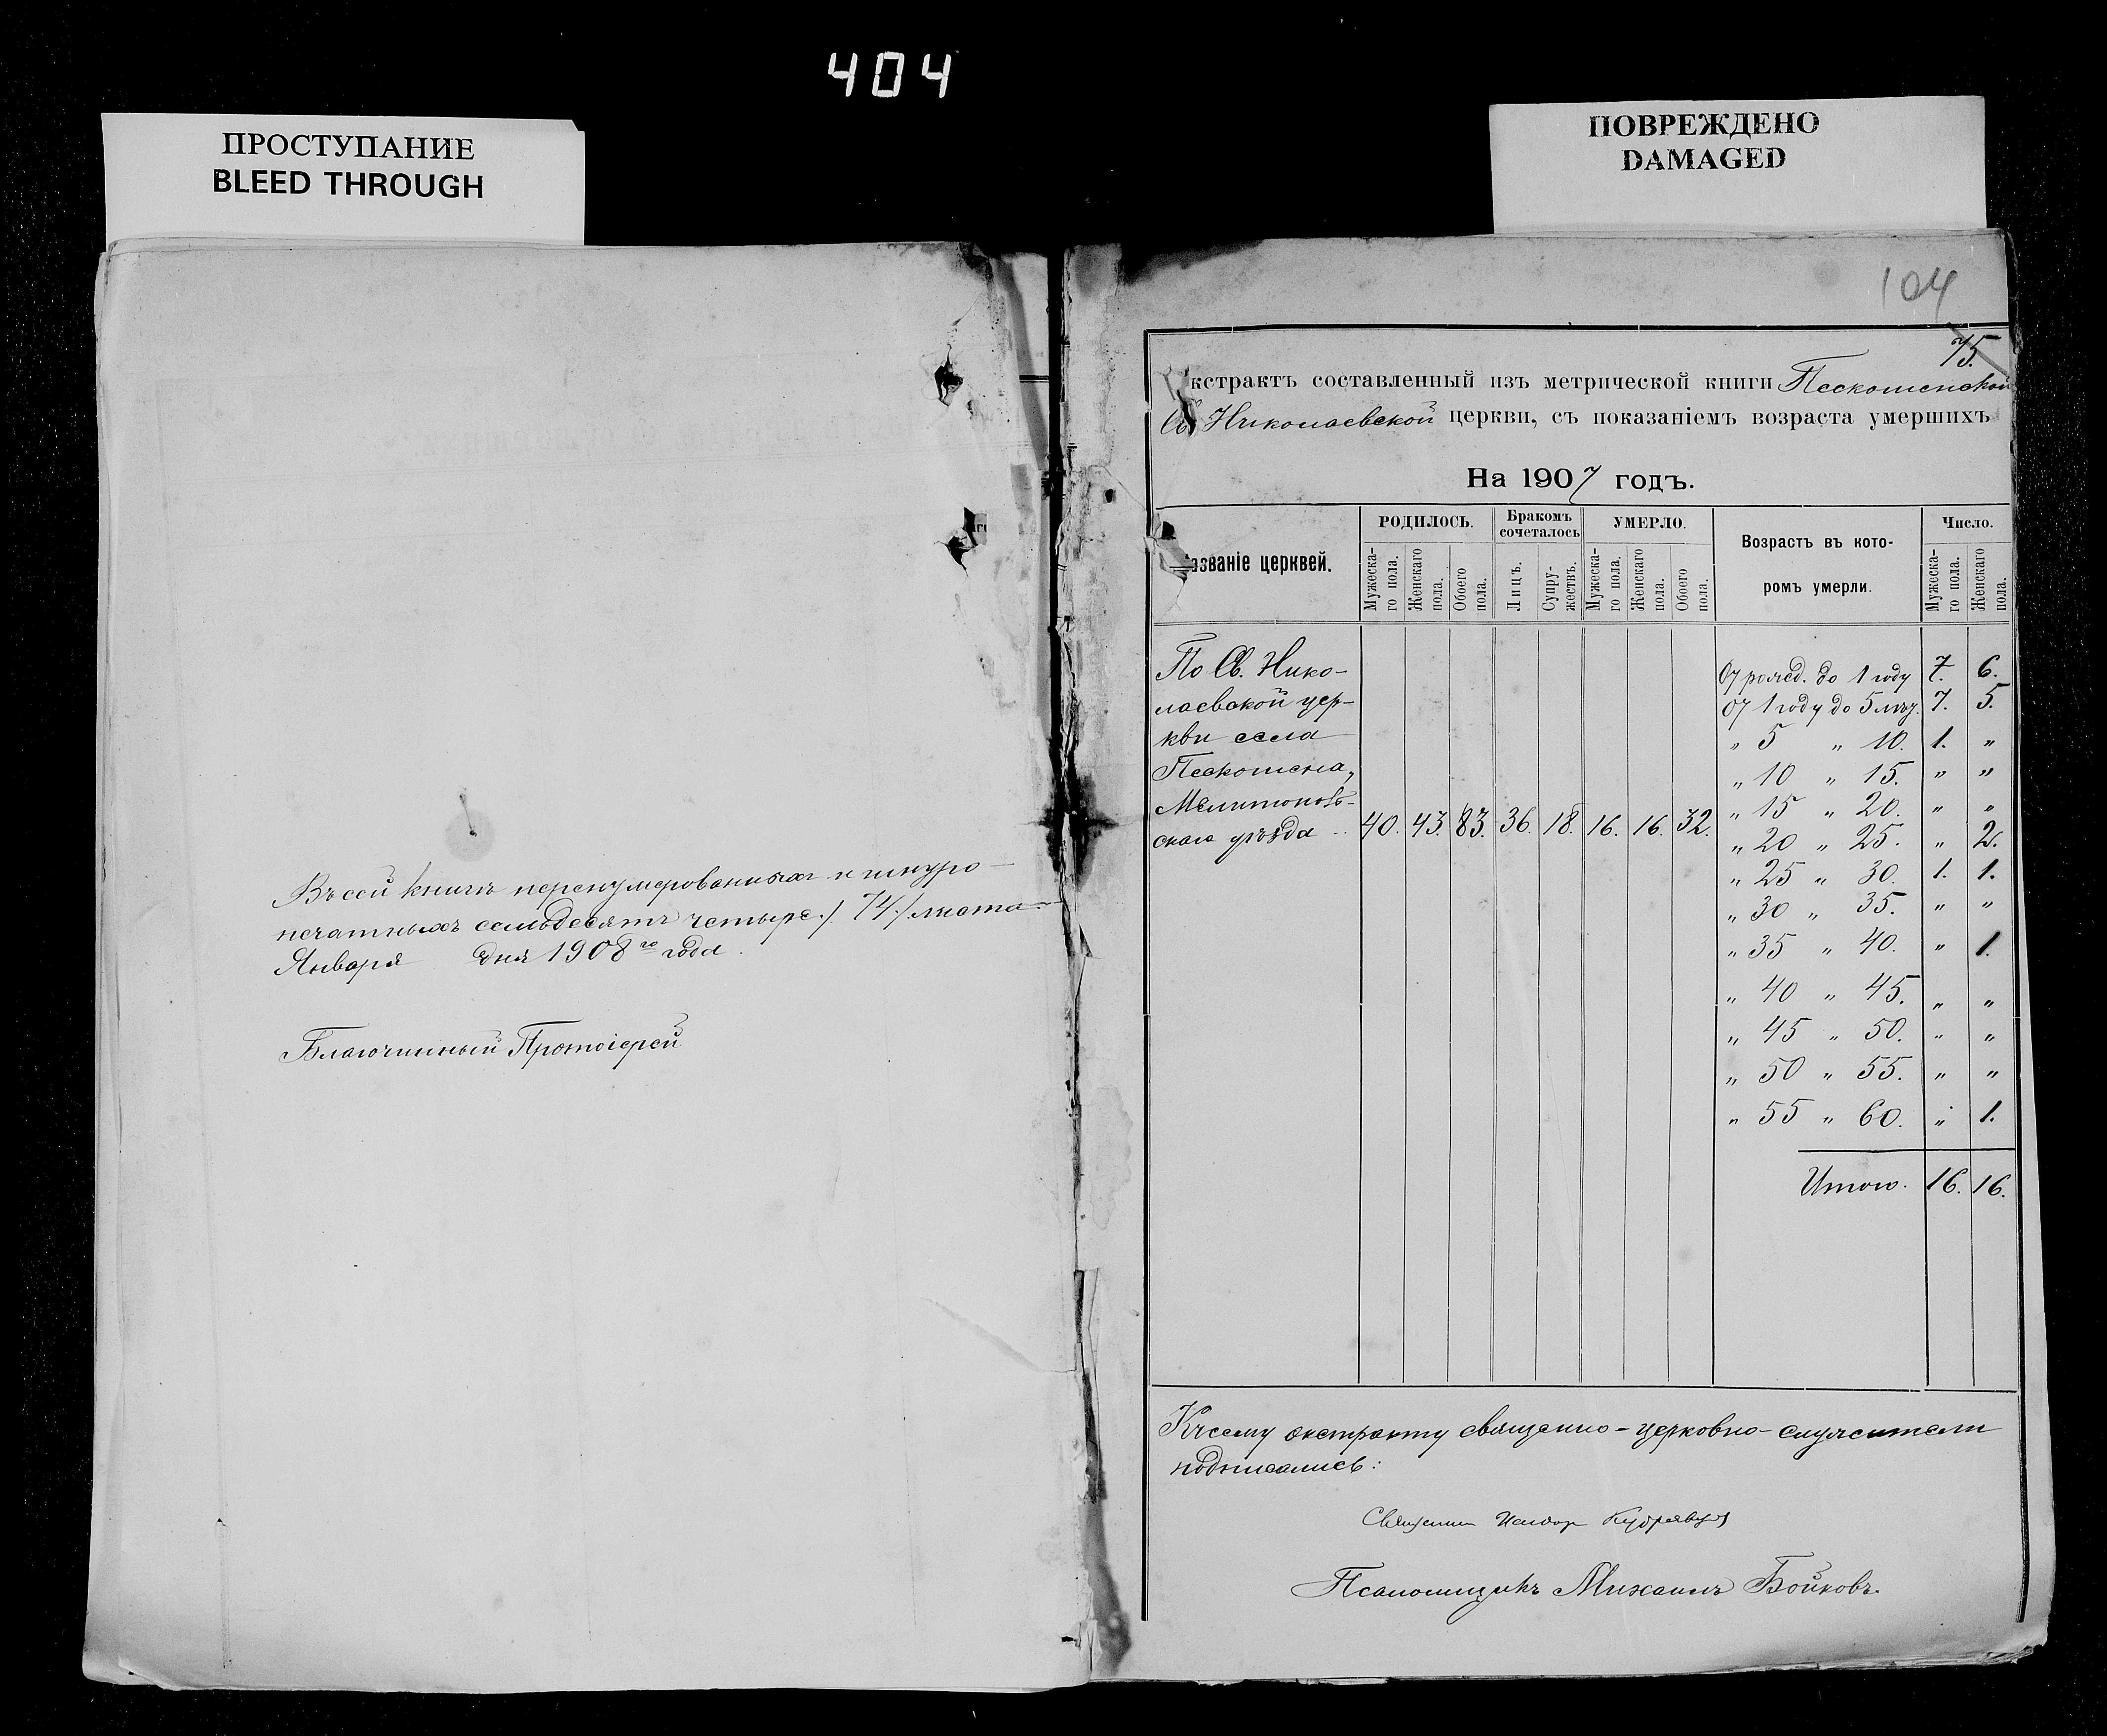 404
ПРОСТУПАНИЕ
BLEED THROUGH
ПОВРЕЖДЕНО
DAMAGED
Въ сей книгѣ перенумерованныхъ и шнуро-
печатныхъ семьдесятъ четыре /74/ листа
Января дня 1908го года.
Благочинный Протоіерей
104
75.
кстрактъ составленный изъ метрической книги Пескошенской
Св Николаевской церкви, съ показаніемъ возраста умершихъ
На 1907 годъ.
азваніе церквей.
РОДИЛОСЬ.
Мужеска-
го пола.
Женскаго
пола.
Обоего
пола.
Бракомъ
сочеталось
Лицъ.
Супру-
жествъ.
УМЕРЛО.
Мужеска-
го пола.
Женскаго
пола.
Обоего
пола.
Возрастъ въ кото-
ромъ умерли.
Число.
Мужеска-
го пола.
Женскаго
пола.
По Св. Нико-
лаевской цер-
кви села
Пескошена,
Мелитополь-
скаго уѣзда .. 40. 43. 83. 36. 18. 16. 16. 32.
От рожд. до 1 году 7. 6.
От 1 году до 5 лѣт. 7. 5.
„ 5 „ 10. 1. „
„ 10 „ 15. „ „
„ 15 „ 20. „ „
„ 20 „ 25. „ 2.
„ 25 „ 30. 1. 1.
„ 30 „ 35. „ „
„ 35 „ 40. „ 1.
„ 40 „ 45. „ „
„ 45 „ 50. „ „
„ 50 „ 55. „ „
„ 55 „ 60. „ 1.
Итого. 16. 16.
Къ сему экстракту священно-церковно-служители
подписались:
Священник Исидор Кудрявцев
Псаломщикъ Михаилъ Бойковъ.